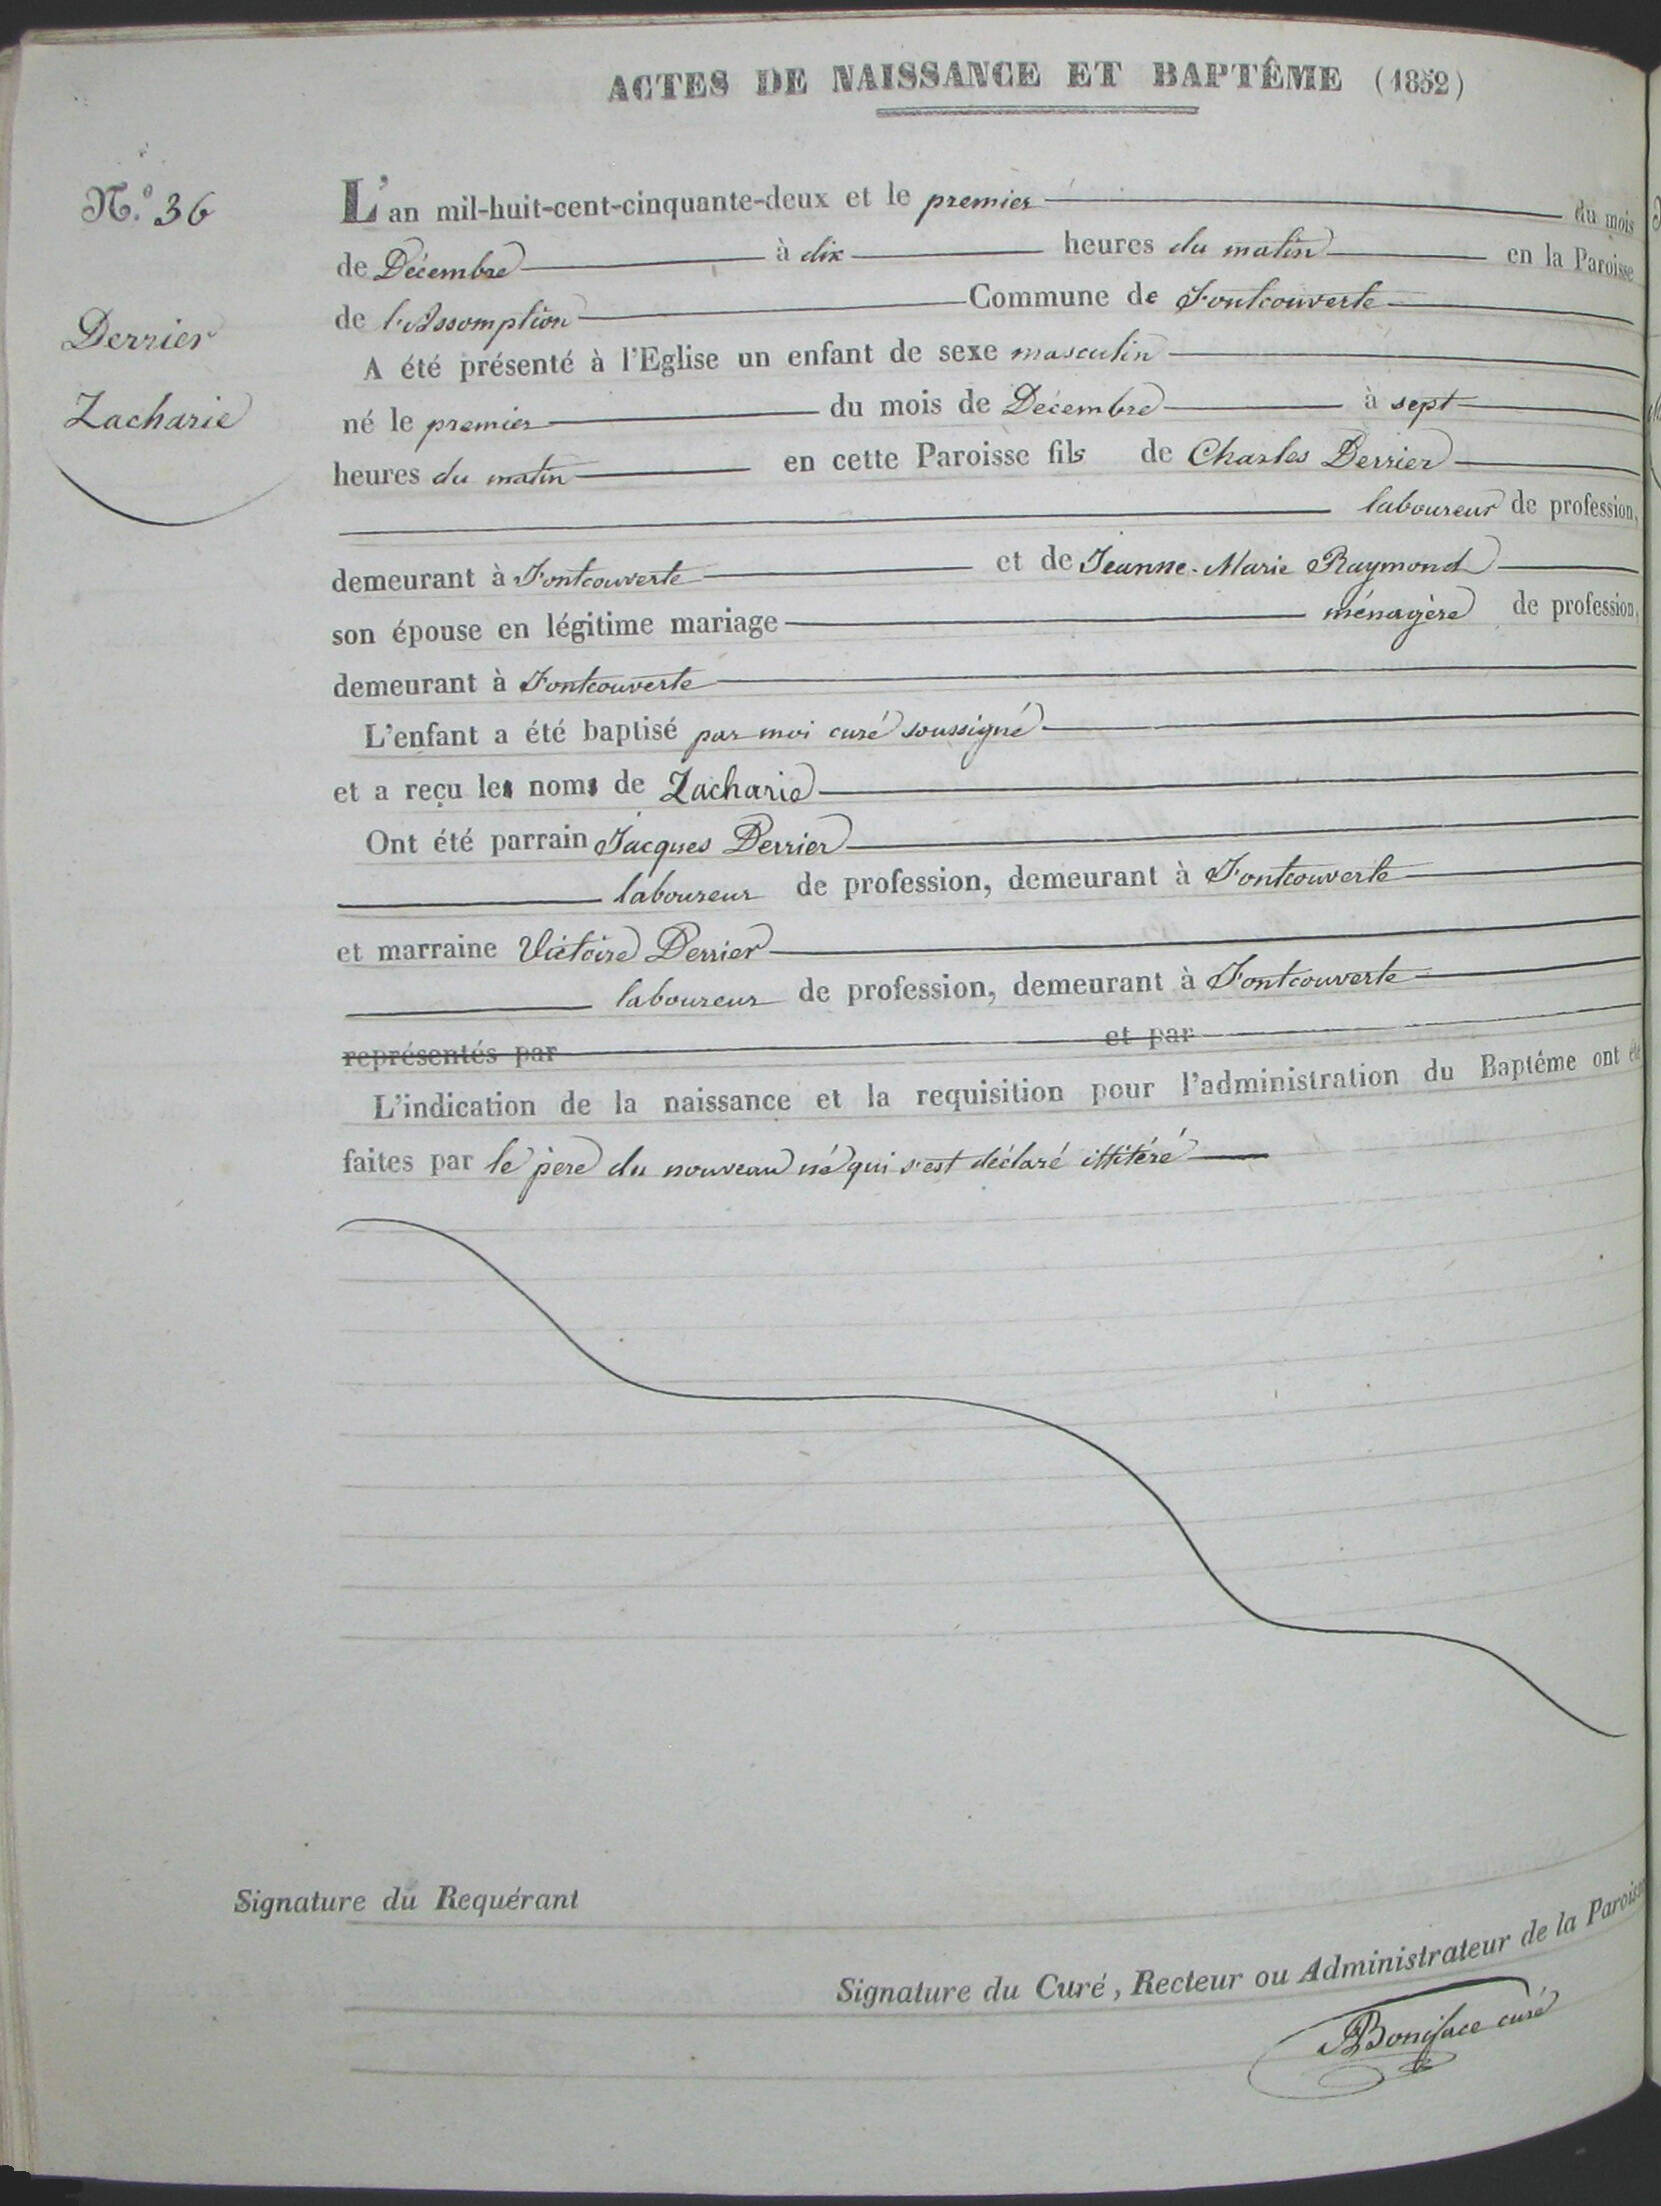 ACTES DE NAISSANCE ET BAPTÊME (1852)
N.º 36
Derrier
Zacharie
L'an mil-huit-cent-cinquante-deux et le premier du mois
de Décembre à dix heures du matin en la Paroisse
de l'Assomption Commune de Fontcouverte
A été présenté à l'Eglise un enfant de sexe masculin
né le premier du mois de Décembre à sept
heures du matin en cette Paroisse fils de Charles Derrier
laboureur de profession,
demeurant à Fontcouverte et de Jeanne-Marie Raymond
son épouse en légitime mariage ménagère de profession,
demeurant à Fontcouverte
L'enfant a été baptisé par moi curé soussigné
et a reçu les noms de Zacharie
Ont été parrain Jacques Derrier
laboureur de profession, demeurant à Fontcouverte
et marraine Victoire Derrier
laboureur de profession, demeurant à Fontcouverte
représentés par et par
L'indication de la naissance et la requisition pour l'administration du Baptême ont été
faites par le père du nouveau né qui s'est déclaré illitéré
Signature du Requérant
Signature du Curé, Recteur ou Administrateur de la Paroisse
Boniface curé